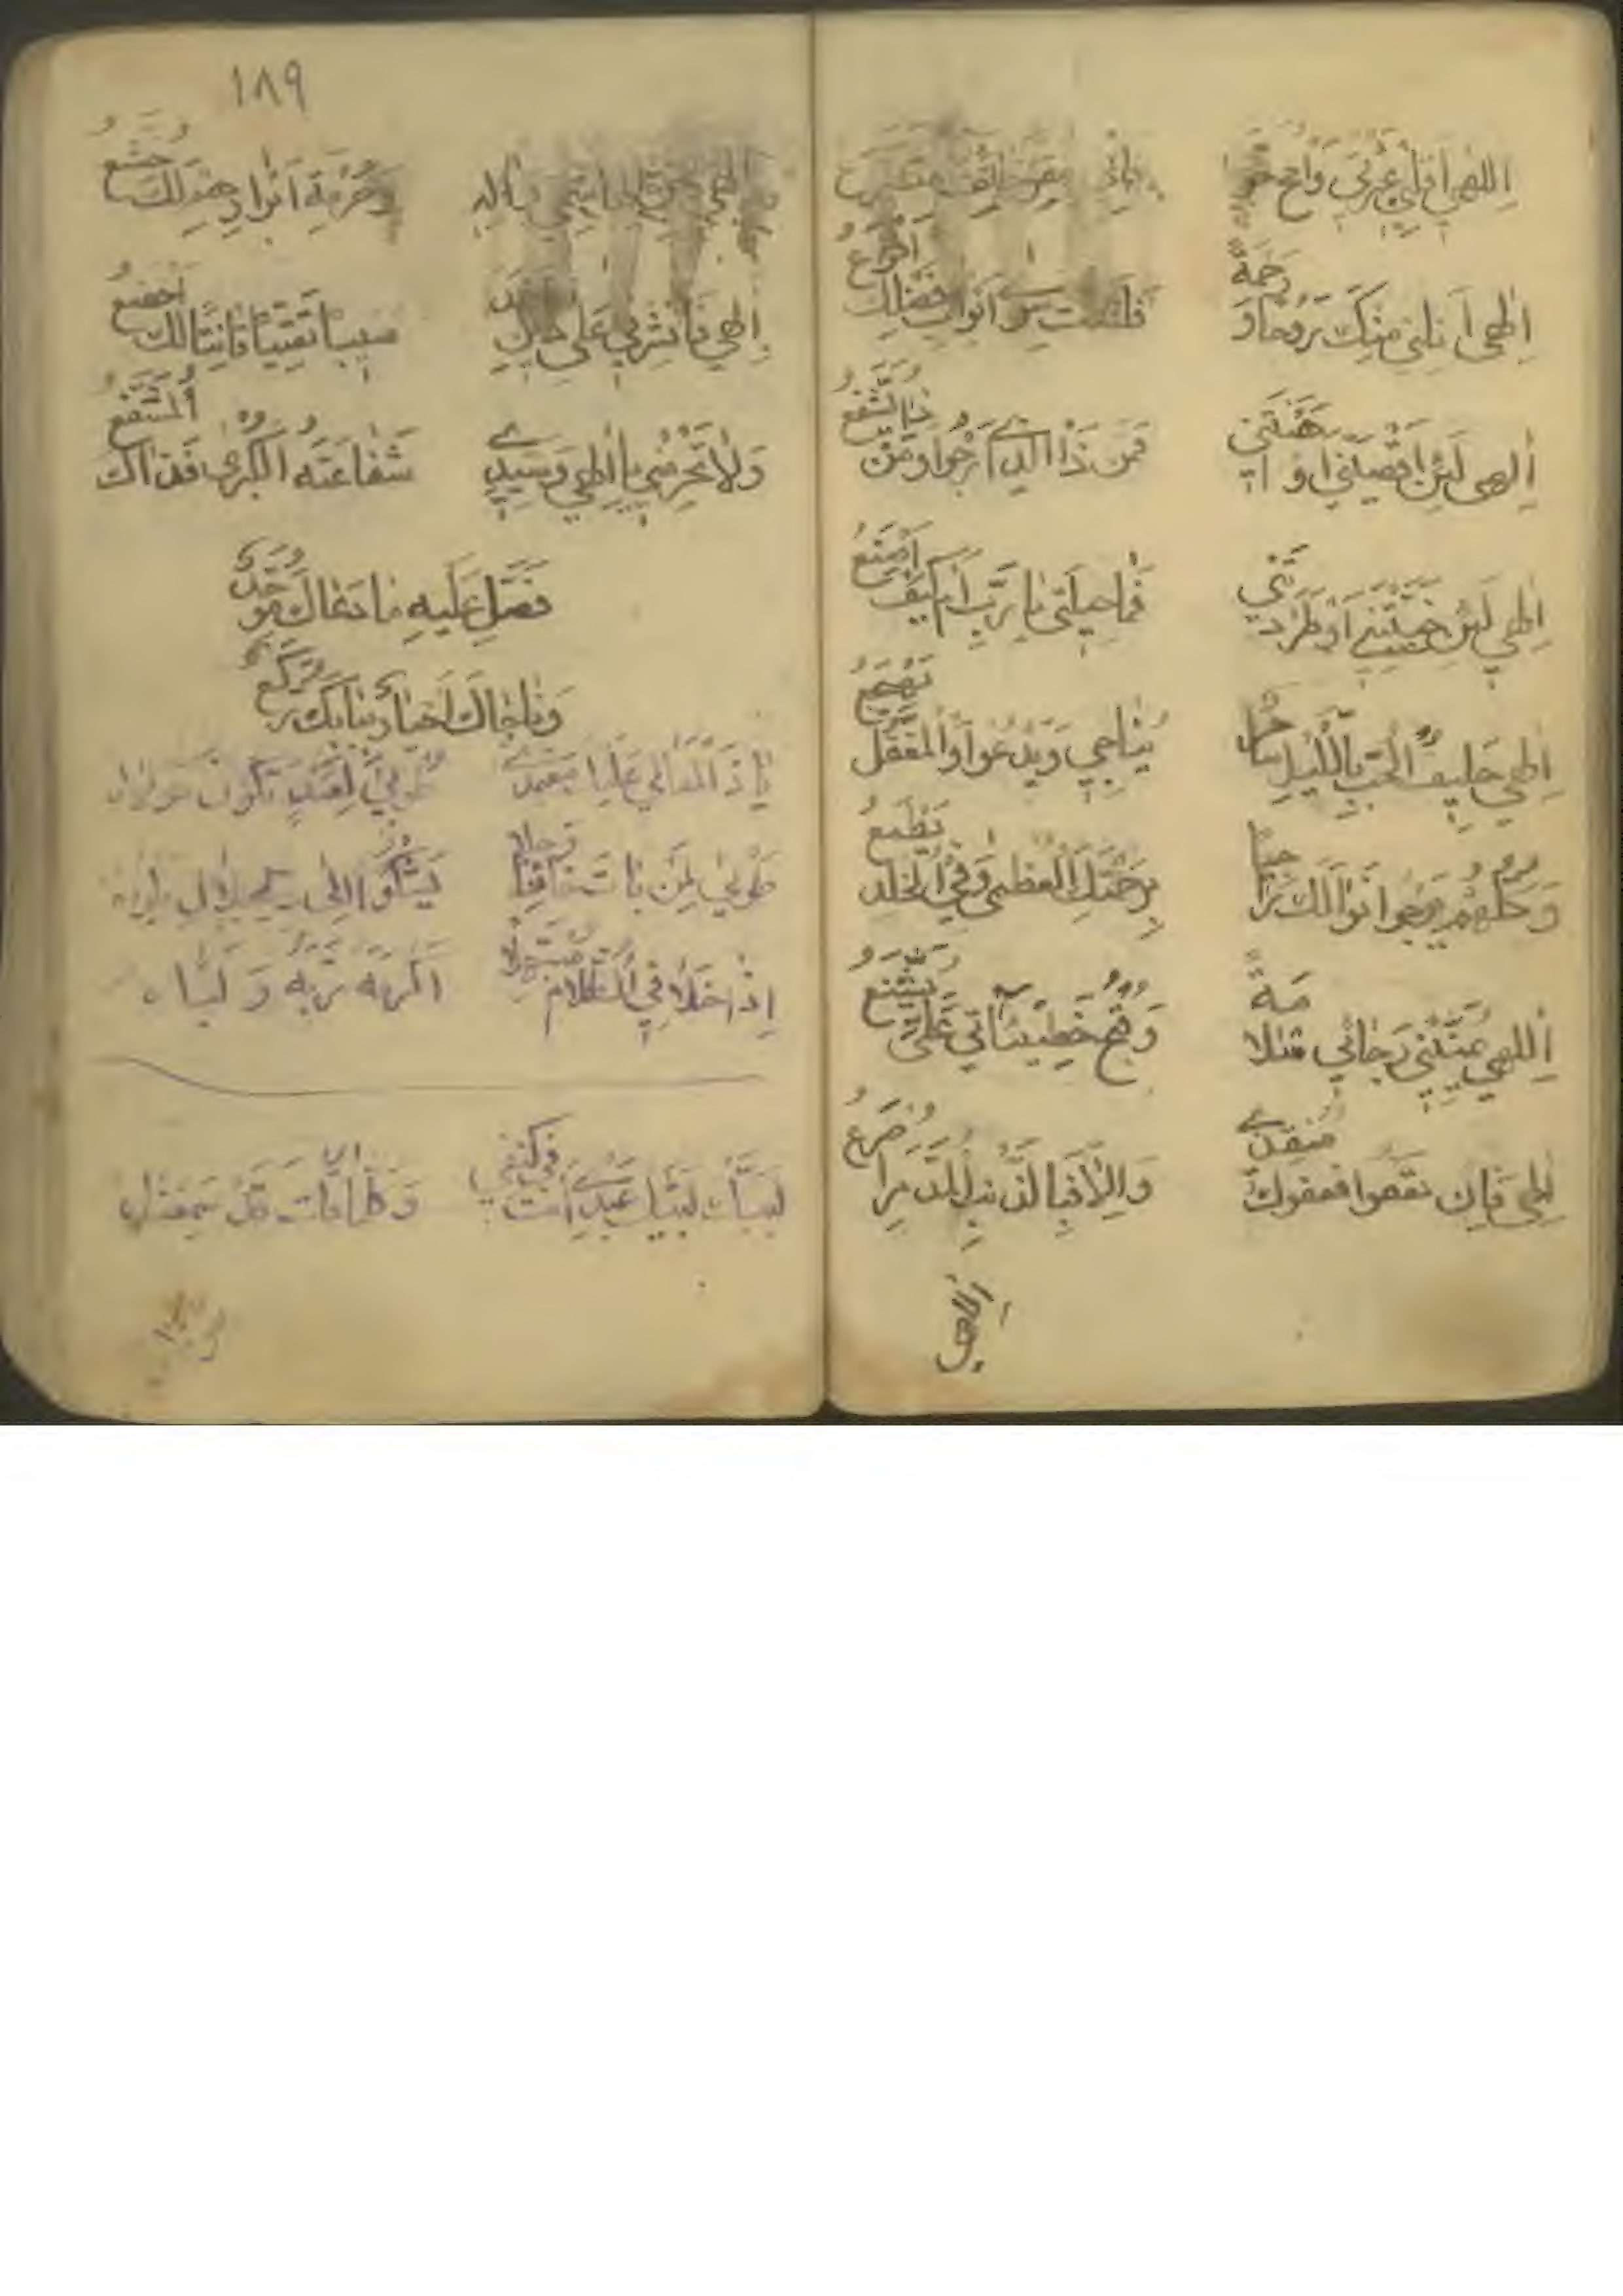 اِلٰهي اَقِلْني عَثْرَتي وَامْحُ حَوْ
فَاِنّي مُقِرٌّ خَائِفٌ مُتَضَرِّعُ
اِلٰهي اَنِلْني مِنْكَ رَوْحًا وَ رَحْمَةً
فَلَسْتُ سِوٰي اَبْوابِ فَضْلِكَ اَقْرَعُ
اِلٰهي لَئِنْ اَقْصَيْتَني اَوْ اَهَنْتَني
فَمَنْ ذَا الَّذي اَرْجُوا وَمَنْ ذا يُشَفَّعُ
اِلٰهي لَئِنْ خَيَّبْتَني اَوْ طَرَدْتَني
فَمٰا حيلَتي يٰا رَبِّ اَمْ كَيْفَ اَصْنَعُ
اِلٰهي حَليفُ الْحُبِّ بِاللَّيْلِ سٰاهِرٌ
يُنٰاجي وَيَدْعُوا وَالْمُغَفَّلُ يَهْجَعُ
وَكُلُّهُمْ يَرْجُوا نَوٰالَكَ رٰاجِيًا
بِرَحْمَتِكَ الْعُظْمٰي وَفِي الْخُلْدِ يَطْمَعُ
اِلٰهي يُمَنّيني رَجٰائي سَلٰامَةً
وَقُبْحُ خَطيئٰاتي عَلَيَّ يُشَنِّعُ
اِلٰهي فَاِنْ تَعْفُوا فَعَفْوُكَ مُنْقِذي
وَاِلّٰا فَبِالذَّنْبِ الْمُدَمِّرِ اُصْرَعُ
اِلٰهي
١٨٩
اِلٰهي بِحَقِّ الْهٰاشِمِيِّ وَاٰلِهِ
وَحُرْمَةِ اَبْرٰارٍ هُمْ لَكَ خُشَّعُ
اِلٰهي فَانْشُرْني عَلٰي دينِ اَحْمَدَ
مُنيبًا تَقِيًّا قٰانِتًا لَكَ اَخْضَعُ
وَلٰا تَحْرِمْني يٰا اِلٰهي وَسَيِّدي
شَفٰاعَتَهُ الْكُبْرٰي فَذٰاكَ الْمُشَفَّعُ
فَصَلِّ عَلَيْهِ مٰا دَعٰاكَ مُوَحِّدٌ
وَنٰاجٰاكَ اَخْيٰارٌ بِبٰابِكَ رُكَّعُ
يٰا ذَالْمَعٰالي عَلَيْكَ مُعْتَمَدي
طُوبٰي لِعَبْدٍ تَكُونُ مَوْلٰاهُ
طُوبٰي لِمَنْ بٰاتَ خٰائِفًا وَجِلًا
يَشْكُوا اِلٰي ذِي الْجَلٰالِ بَلْوٰاهُ
اِذٰا خَلٰا فِي الظَّلٰامِ مُبْتَهِلًا
اَكْرَمَهُ رَبُّهُ وَ لَبّٰاهُ
لَبَّيْكَ لَبَّيْكَ عَبْدي اَنْتَ في كَنَفي
وَكُلَّمٰا قُلْتَ قَدْ سَمِعْنٰاهُ